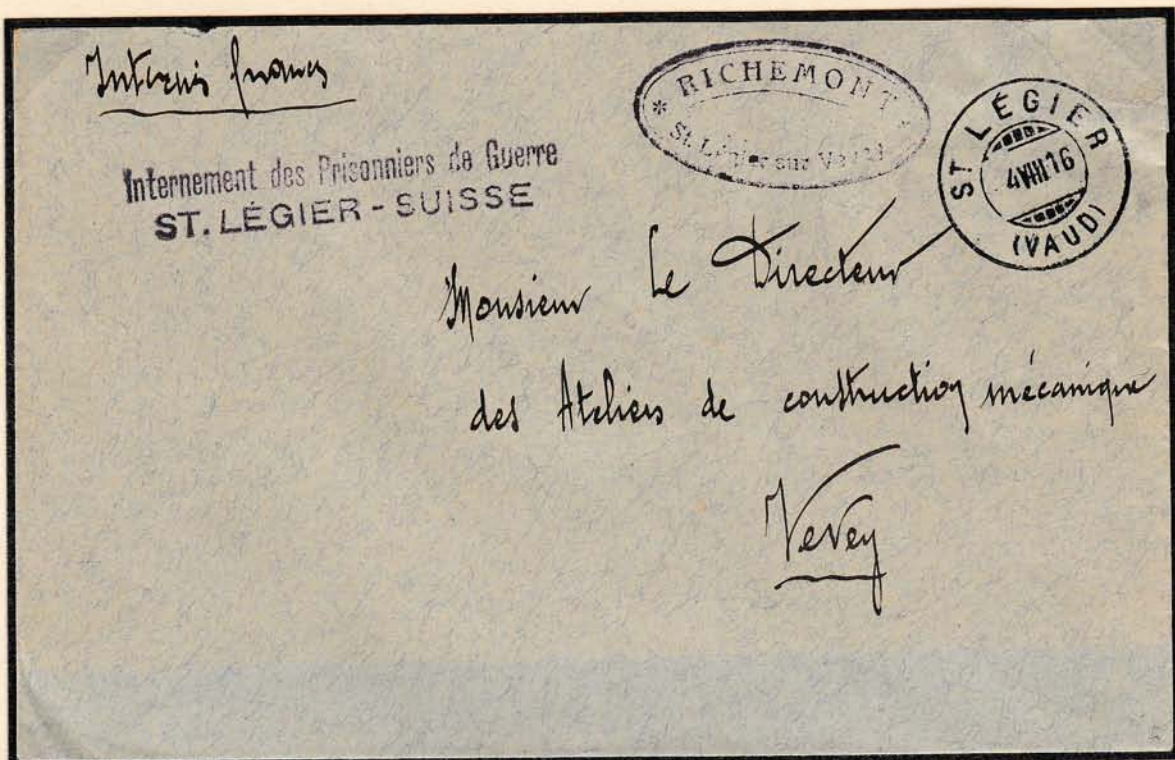 Internés francs
Internement des Prisonniers de Guerre
ST. LÉGIER - SUISSE
* RICHEMONT *
St. Légier sur Vevey
ST LÉGIER
4 VIII 16
(VAUD)
Monsieur Le Directeur
des Ateliers de construction mécanique
Vevey